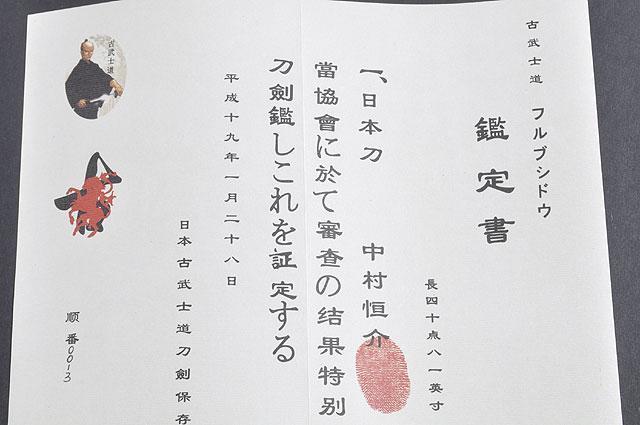 古武士道 フルブシドウ
鑑定書
長四十点八一英寸
一、日本刀 中村恒介
當協會に於て審査の结果特别
刀劍鑑しこれを証定する
平成十九年一月二十八日
日本古武士道刀劍保存
古武士道
順番0013